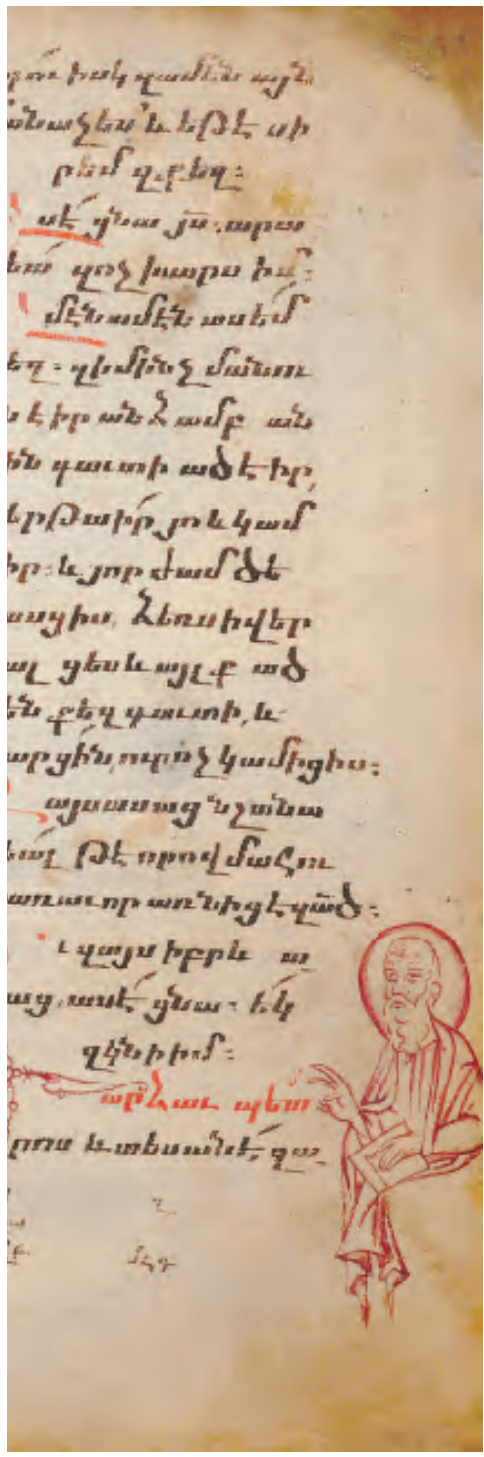 իսկ զամենն այն
ճանաչես՝ և եթէ սի
րեմ զքեզ։
ասէ ցնա յս. արա
ծեա՛ զոչխարս իմ։
մէն ամէն ասեմ
քեզ. զի մինչ մանու
ն էիր անձամբ ան
ին գաւտի ածէիր,
երթաիր յո և կամ
իր։ և յորժամ ծե
ասցիս, ձեռս ի վեր
ալ ցես և այլք ած
են քեզ գաւտի, և
արցին, ուր ոչ կամիցիս։
այս ասաց նշանա
եալ թէ որով մահու
առաւոր առնիցէ զա՟ծ։
ւ զայս իբրև ա
աց, ասէ ցնա. ե՛կ
զկնի իմ։
արձաւ պետ
րոս և տեսանէ, զա